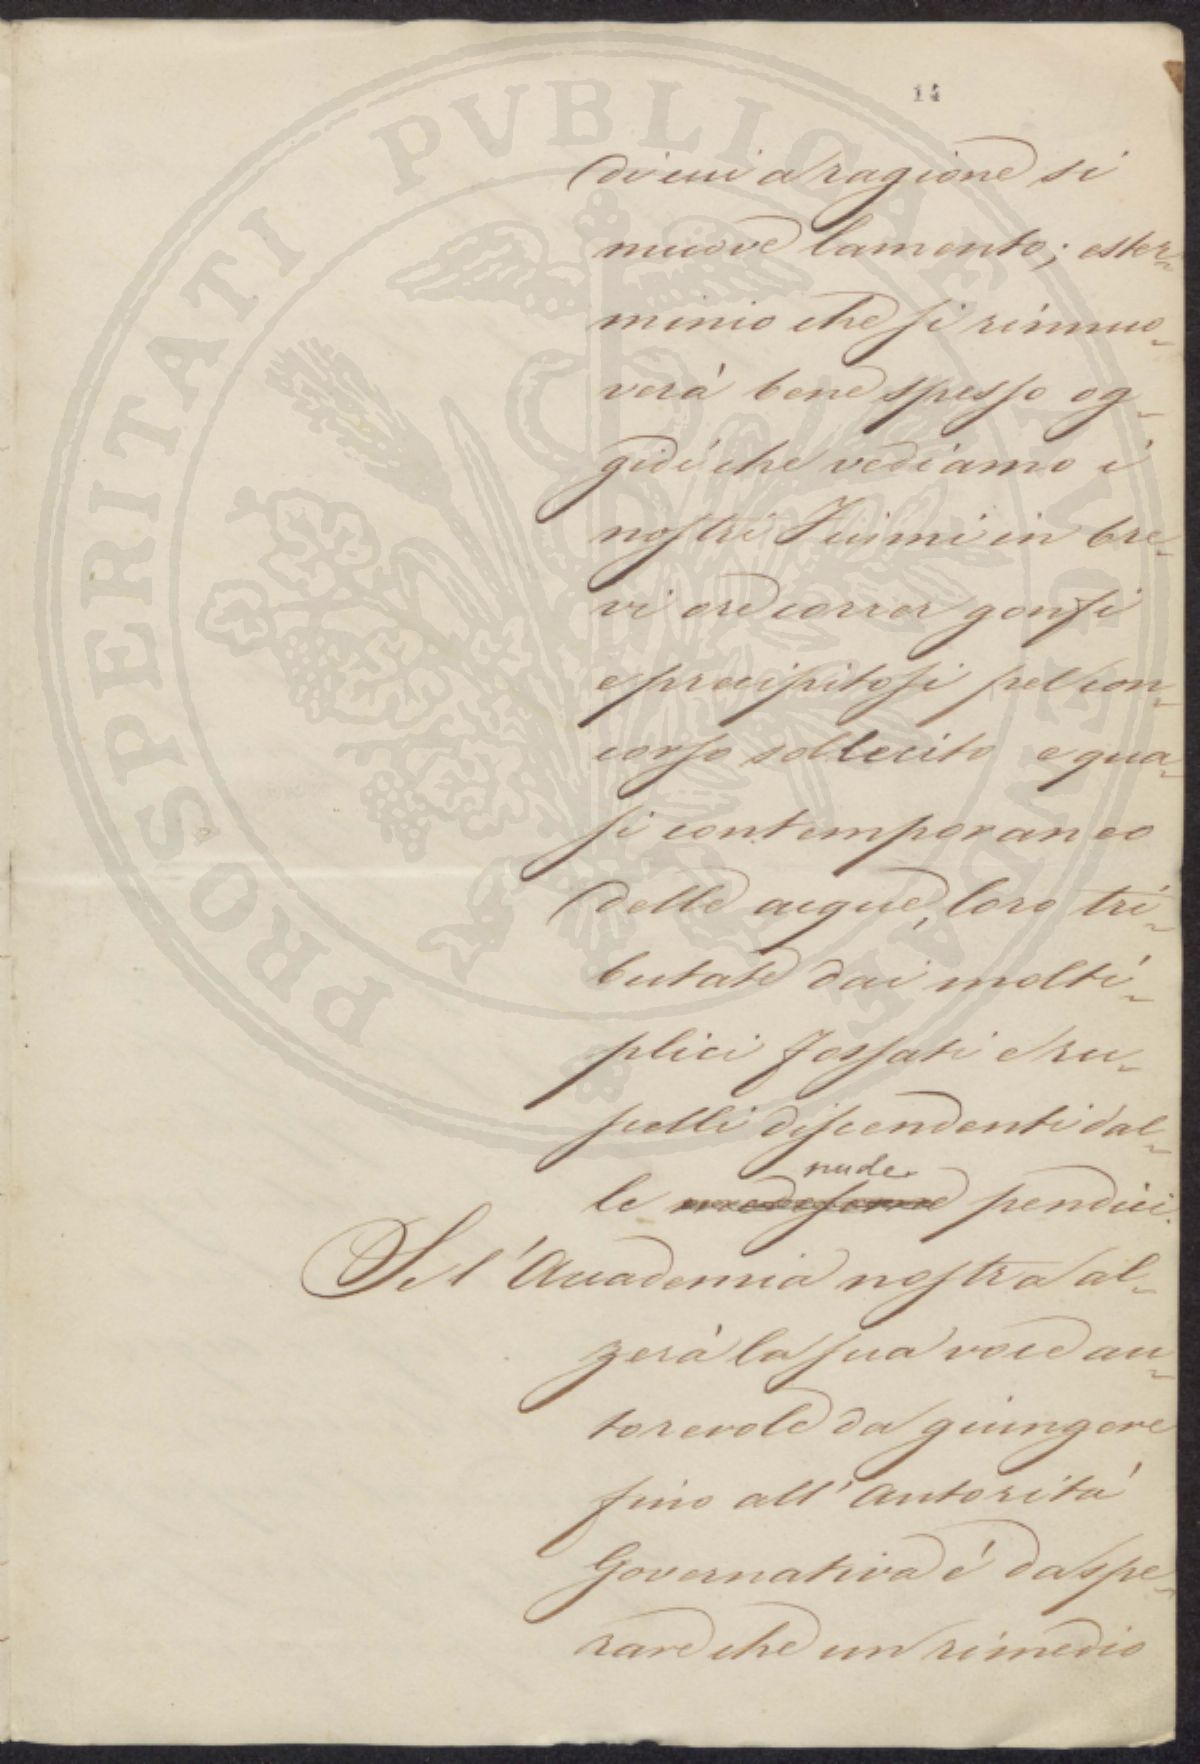 14
PROSPERITATI PVBLICAE AVGENDAE
di cui a ragione si
muove lamento; ester-
minio che si rinnuo-
verà bene spesso og-
gidì che vediamo i
nostri Fiumi in bre-
vi ore correr gonfi
e precipitosi pel con-
corso sollecito e qua-
si contemporaneo
delle acque, loro tri-
butate dai molti-
plici fossati e ru-
scelli discendenti dal-
nude
le medesime pendici.
Se l'Accademia nostra al-
zerà la sua voce au-
torevole da giungere
fino all'Autorità
Governativa è da spe-
rare che un rimedio